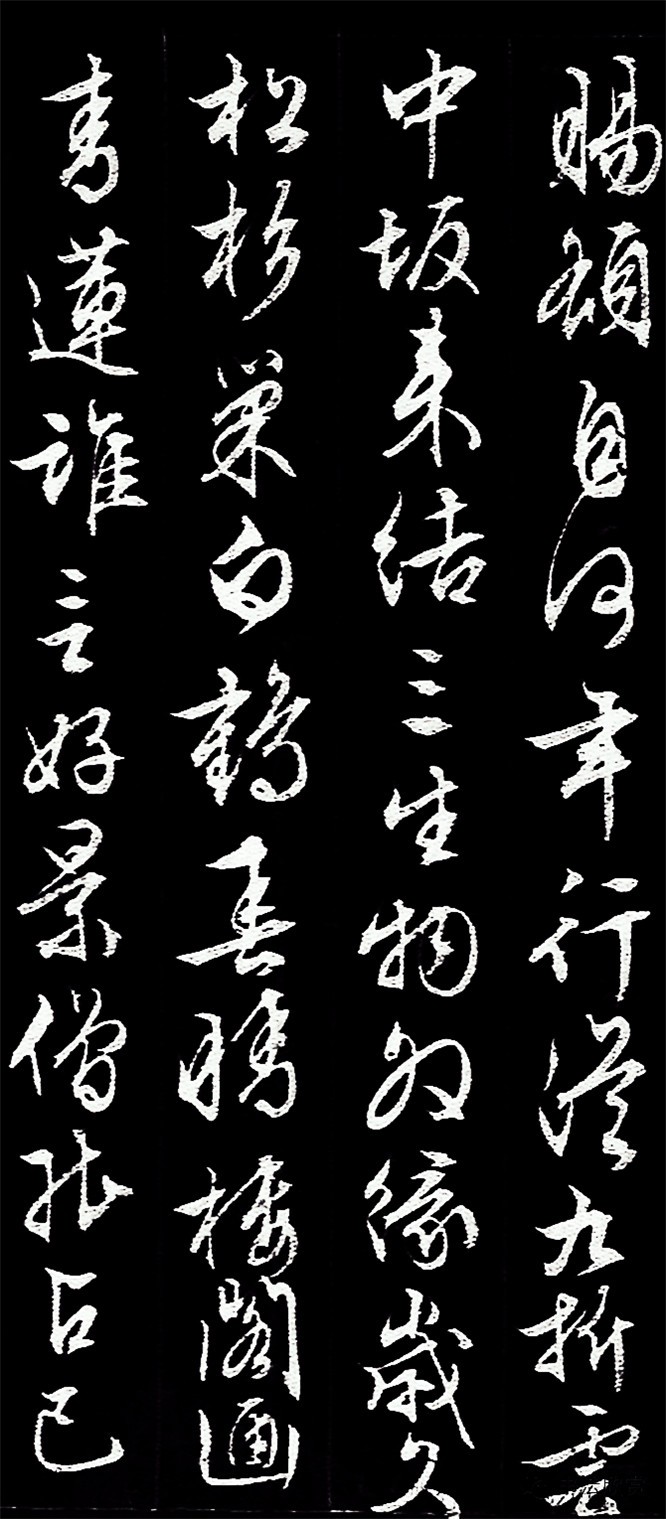 賜額自何年行從九折雲
中坂來結三生物外緣歲久
松杉巢白鶴春晴樓閣遍
青蓮誰言好景僧能占已